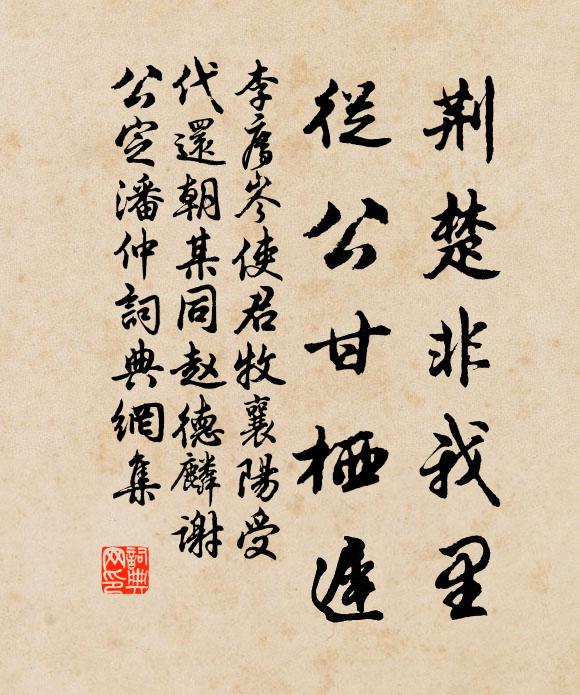 荆楚非我里
從公甘栖遲
李膺岑使君牧襄陽受
代還朝某同赵德麟谢
公定潘仲詞典網集
詞典网印